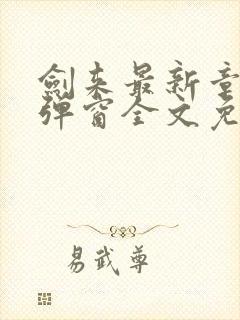 劍来最新章
弹窗全文免
易武尊